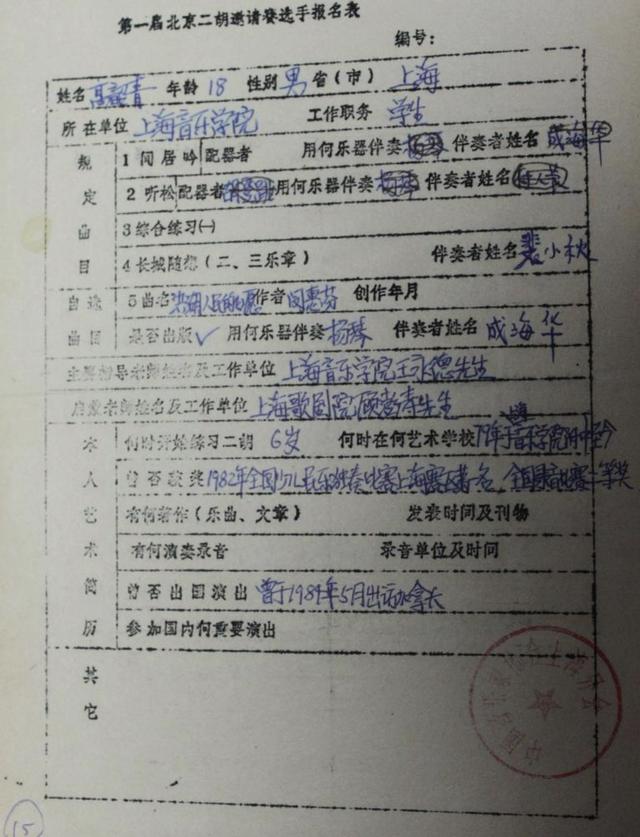 第一届北京二胡邀请赛选手报名表
编号：
姓名 高韶青 年龄 18 性别 男 省(市) 上海
所在单位 上海音乐学院 工作职务 学生
规定曲目
1 闲居吟 配器者 用何乐器伴奏 杨琴 伴奏者姓名 成海华
2 听松 配器者 用何乐器伴奏 杨琴 伴奏者姓名
3 综合练习(一)
4 长城随想（二、三乐章） 伴奏者姓名 裴小秋
自选曲目
5 曲名 洪湖人民的心愿 作者 闵惠芬 创作年月
是否出版 ✓ 用何乐器伴奏 杨琴 伴奏者姓名 成海华
主要指导老师姓名及工作单位 上海音乐学院王永德先生
启蒙老师姓名及工作单位 上海歌剧院 先生
本人艺术简历
何时开始练习二胡 6岁 何时在何艺术学校 音乐学院附中至今
曾否获奖 1982年全国少儿民乐独奏比赛上海赛区 名 全国 比赛二等奖
有何著作（乐曲、文章） 发表时间及刊物
有何演奏录音 录音单位及时间
曾否出国演出 曾于1984年5月出访加拿大
参加国内何重要演出
其它
中国音乐家协会上海分会
15